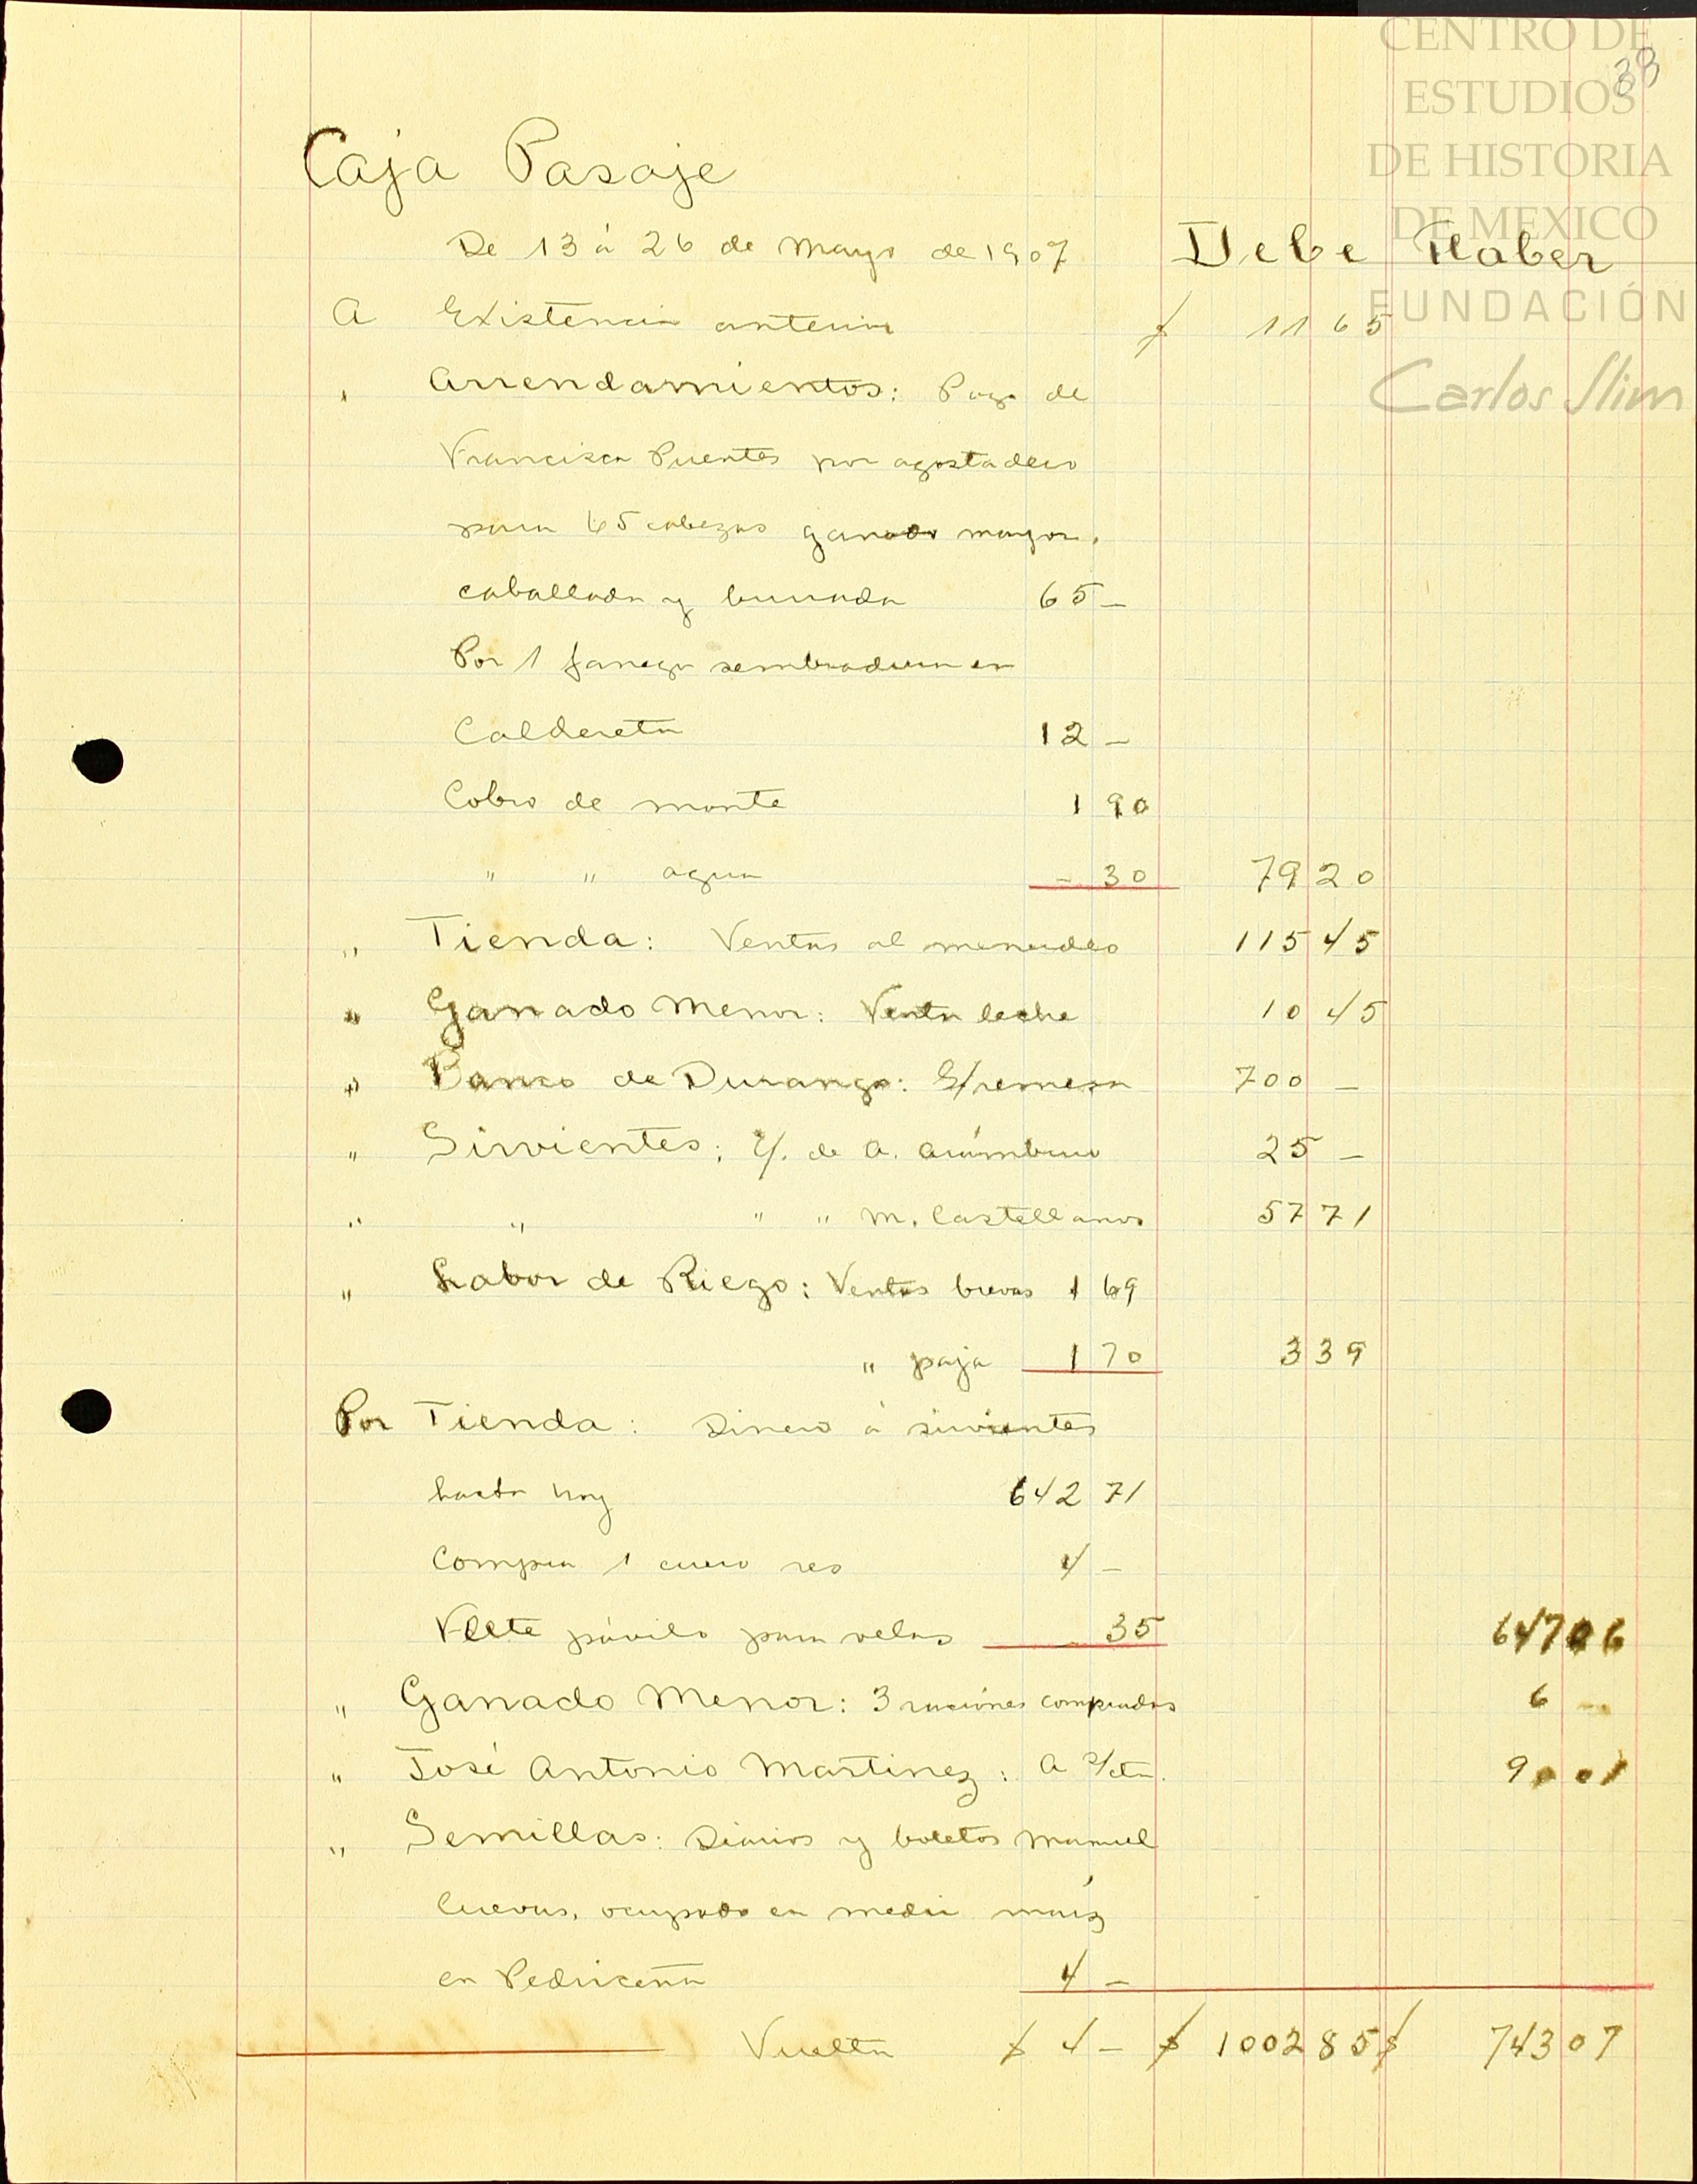 CENTRO DE
ESTUDIOS
DE HISTORIA
DE MEXICO
FUNDACIÓN
Carlos Slim
Caja Pasaje
De 13 á 26 de Mayo de 1907 Debe Haber
A Existencia anterior $ 11 65
" Arrendamientos: Pago de
Francisca Puentes por agostadero
para 65 cabezas ganado mayor,
caballada y burrada 65 —
Por 1 fanega sembradura en
Caldereta 12 —
Cobro de monte 1 90
" " agua - 30 79 20
" Tienda: Ventas al menudeo 115 45
" Ganado Menor: Venta leche 10 45
" Banco de Durango: S/remesa 700 —
" Sirvientes: E/. de A. Arámburo 25 —
" " " " M. Castellanos 57 71
" Labor de Riego: Ventas brevas 1 69
" paja 1 70 3 39
Por Tienda: Dinero á sirvientes
hasta hoy 642 71
Compra 1 cuero res 4 —
Flete pávilo para velas - 35 647 06
" Ganado Menor: 3 raciones compradas 6 —
" José Antonio Martinez: A s/cta. 90 01
" Semillas: Diarios y boletos Manuel
Cuevas, ocupado en medir maíz
en Pedriceña 4 —
Vuelta $ 4 — $ 1002 85 $ 743 07